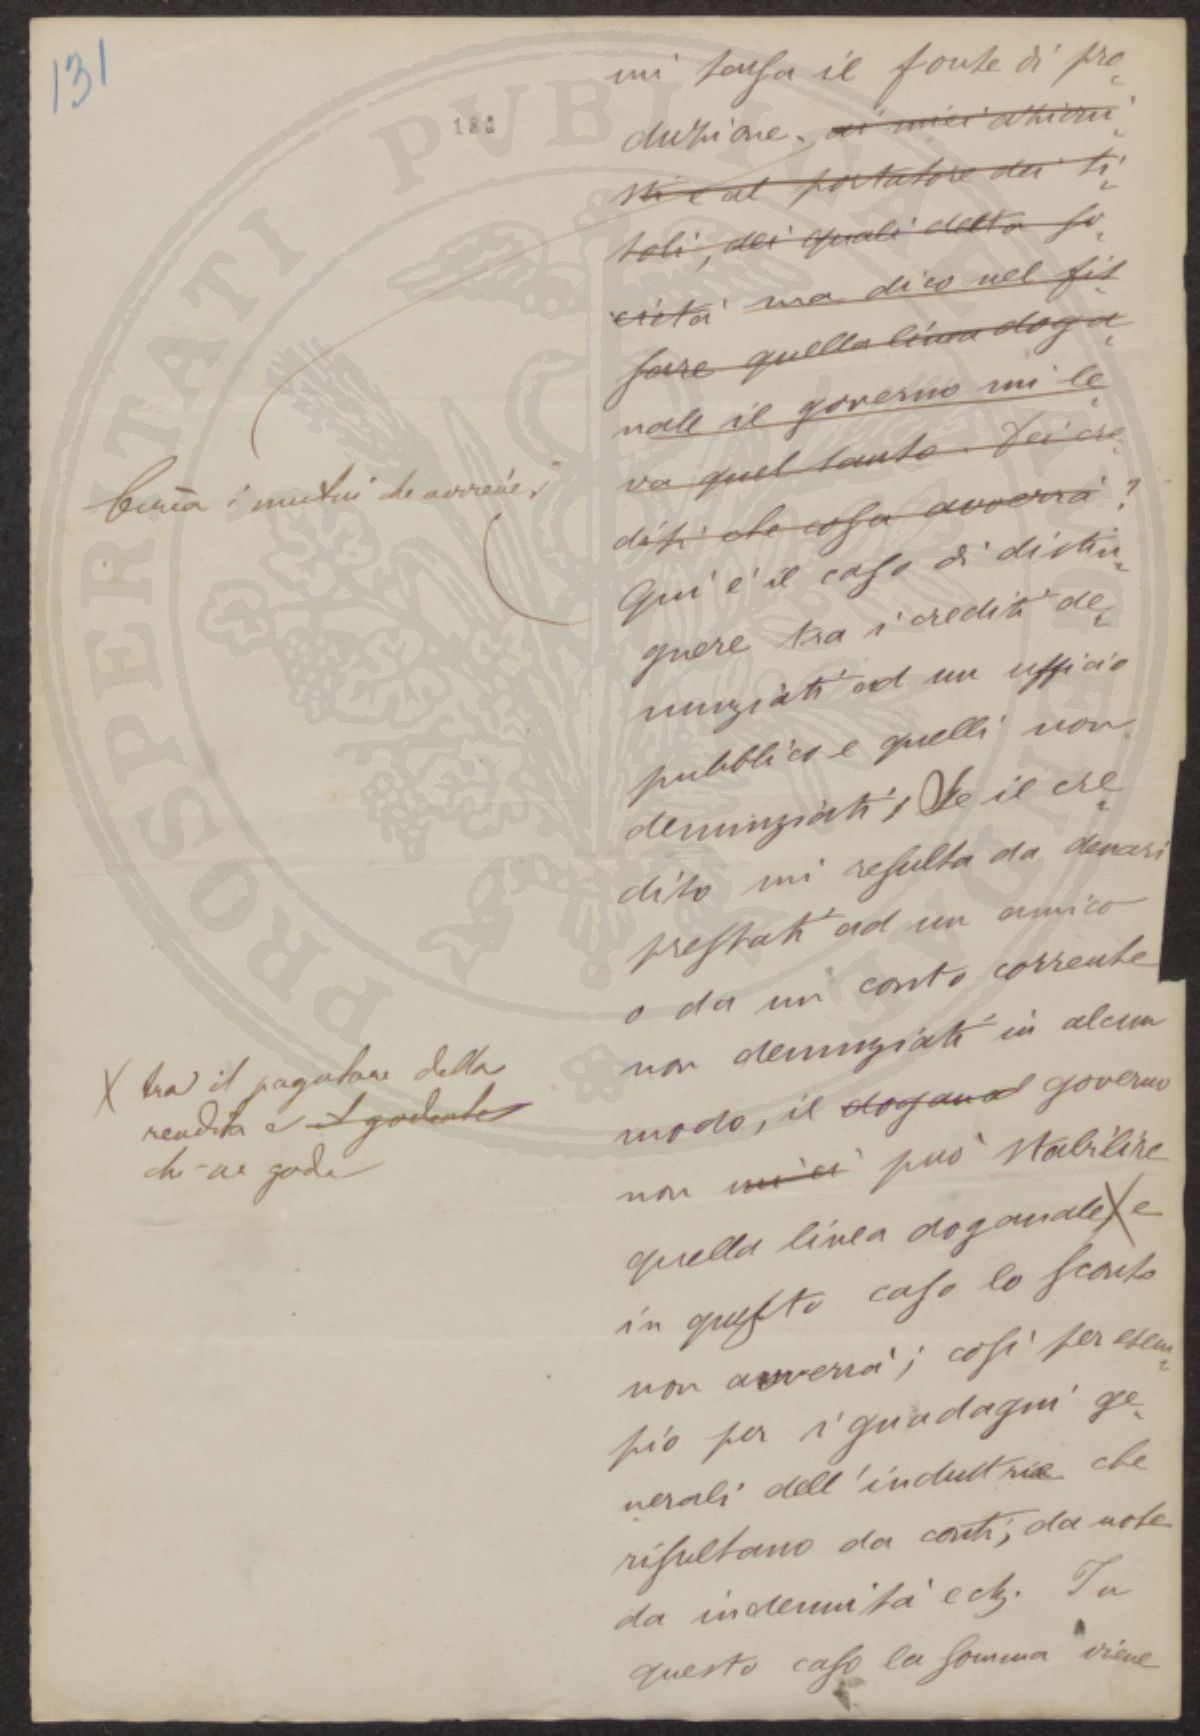 131
182
mi tassa il fonte di pro
duzione. ai miei azioni
sti e al portatore dei ti
toli, dei quali detta so
cietà ma dico nel fis
sare quella linea doga
nale il governo mi le
va quel tanto. Dei cre
diti che cosa avverrà?
Qui è il caso di distin
guere tra i crediti de
nunziati ad un ufficio
pubblico e quelli non
denunziati, Se il cre
dito mi resulta da denari
prestati ad un amico
o da un conto corrente
non denunziati in alcun
modo, il doganal governo
non mi ci può stabilire
quella linea doganale X e
in questo caso lo sconto
non avverrà; così per esem
pio per i guadagni ge
nerali dell'industria che
risultano da conti, da note
da indennità ectz. In
questo caso la somma viene
i mutui che avviene,
X tra il pagatore della
rendita e il godente
chi ne gode
PROSPERITATI PVBLICAE